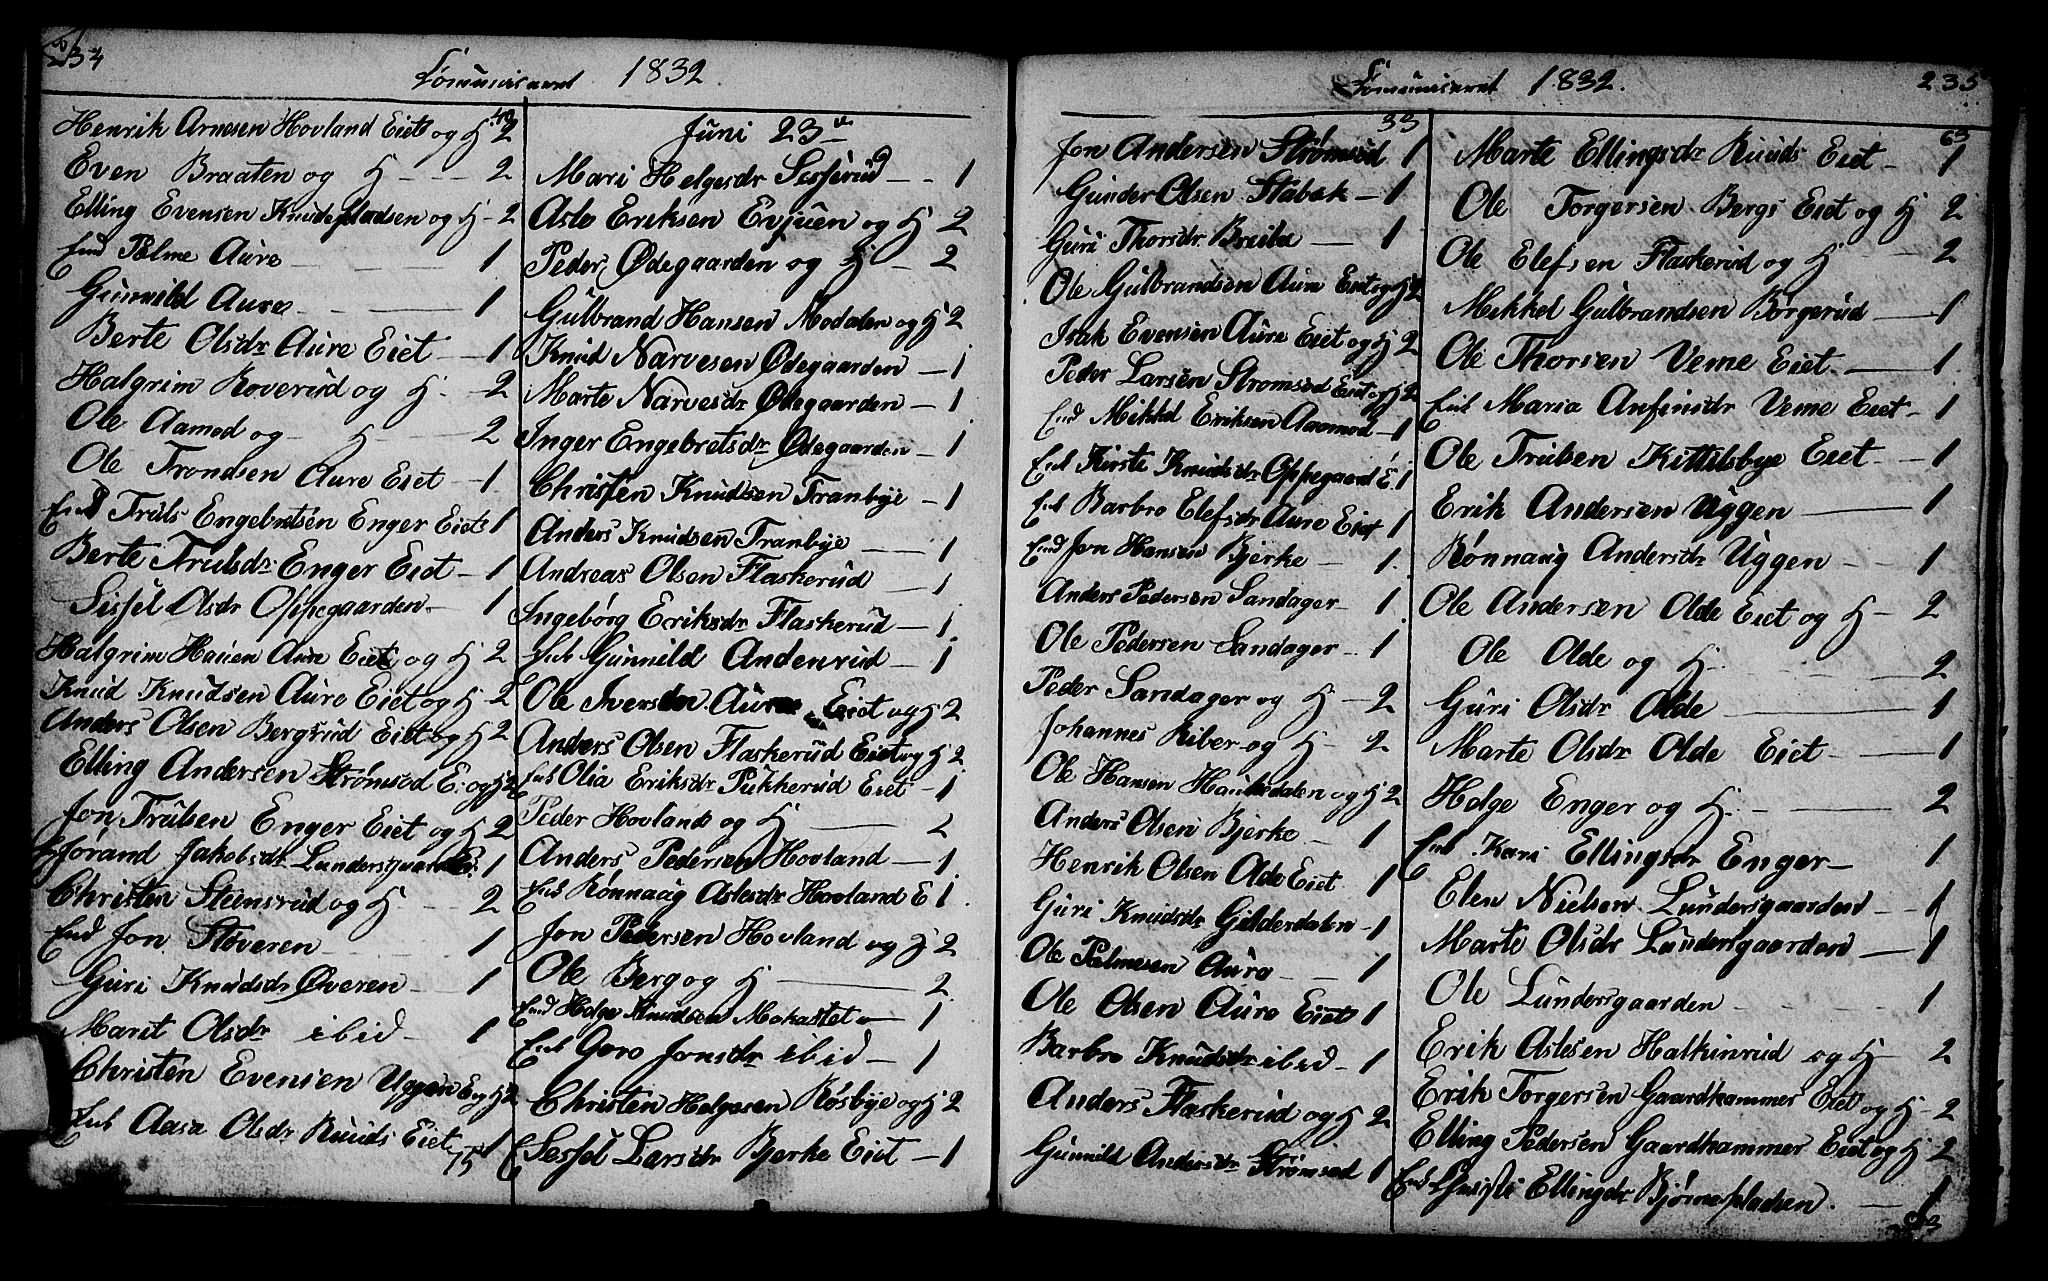 234
Communiceret 1832.
43
Henrik Arnesen Hovland Eiet og H 2
Even Braaten og H - 2
Elling Evensen Knudspladsen og H - 2
End Palme Aure - 1
Gunnild Aure - 1
Berte Olsdr Aure Eiet - 1
Halgrim Roverud og H. - 2
Ole Aamod og H - 2
Ole Trondsen Aure Eiet - 1
End Truls Engebretsen Enger Eiet 1
Berte Trulsdr Enger Eiet - 1
Sissel Olsdr Oppegaarden - 1
Halgrim Hansen Aure Eiet og H 2
Knud Knudsen Aure Eiet og H - 2
Anders Olsen Bergsrud Eiet og H 2
Elling Andersen Strømsod E. og H 2
Jon Trulsen Enger Eiet og H 2
Jørand Jakobsdr Lundersgaarden E. 1
Christen Steensrud og H - 2
End Jon Støveren - 1
Guri Knudsdr Øveren - 1
Marit Olsdr ibid - 1
Christen Evensen Uggen E og H 2
Enk Aasa Olsdr Ruuds Eiet 1
75
Juni 23de
Mari Helgesdr Sesserud - 1
Aslo Eriksen Evjuen og H 2
Peder Ødegaarden og H - 2
Gulbrand Hansen Modalen og H 2
Knud Narvesen Ødegaarden - 1
Marte Narvesdr Ødegaarden - 1
Inger Engebretsdr Ødegaarden - 1
Christen Knudsen Tranbye - 1
Anders Knudsen Tranbye - 1
Andreas Olsen Flaskerud - 1
Ingeborg Eriksdr Flaskerud - 1
Enk Gunnild Andenrud - 1
Ole Iversen Aure Eiet og H 2
Anders Olsen Flaskerud Eiet og H 2
Enk Olia Eriksdr Pukkerud Eiet - 1
Peder Hovland og H - 2
Anders Pedersen Hovland - 1
Enk Rønnaug Aslesdr Hovland E 1
Jon Pedersen Hovland og H 2
Ole Berg og H - 2
End Helge Knudsen Mokastet - 1
Enk Goro Jonsdr ibid - 1
Christen Helgesen Røsbye og H 2
Sessel Larsdr Bjerke Eiet - 1
Communiceret 1832.
235
33
Jon Andersen Strømsod 1
Gunder Olsen Stabek - 1
Guri Thorsdr Breili - 1
Ole Gulbrandsen Aure Eiet og H 2
Isak Evensen Aure Eiet og H 2
Peder Larsen Strømsod Eiet og H 2
End Mikkel Eriksen Aamod - 1
Enk Kirste Knudsdr Oppegaard E. 1
Enk Barbro Elefsdr Aure Eiet 1
End Jon Hansen Bjerke - 1.
Anders Pedersen Sandager - 1
Ole Pedersen Sandager - 1
Peder Sandager og H - 2
Johannes Riber og H - 2
Ole Hansen Hauksdalen og H 2
Anders Olsen Bjerke - 1
Henrik Olsen Olde Eiet 1
Guri Knudsdr Gilderdalen - 1
Ole Palmesen Aure - 1
Ole Olsen Aure Eiet 1
Barbro Knudsdr ibid - 1
Anders Flaskerud og H 2
Gunnild Andersdr Strømsod 1
63
Marte Ellingsdr Ruuds Eiet - 1
Ole Torgersen Bergs Eiet og H 2
Ole Elefsen Flaskerud og H - 2
Mikkel Gulbrandsen Borgerud - 1
Ole Thorsen Veme Eiet. - 1.
Enk Maria Anfinsdr Veme Eiet - 1
Ole Trulsen Kittilsbye Eiet - 1
Erik Andersen Uggen - 1
Rønnaug Andersdr Uggen - 1
Ole Andersen Olde Eiet og H - 2
Ole Olde og H - 2
Guri Olsdr Olde - 1
Marte Olsdr Olde Eiet - 1
Helge Enger og H. - 2
Enk Kari Ellingsdr Enger - 1
Elen Nielsen Lundersgaarden - 1
Marte Olsdr Lundersgaarden - 1
Ole Lundersgaarden - 1
Erik Aslesen Halkinrud og H - 2
Erik Torgersen Gaardhammer Eiet og H - 2
Elling Pedersen Gaardhammer Eiet og H 2
Enk Christi Ellingdr Bjørnepladsen. - 1
93